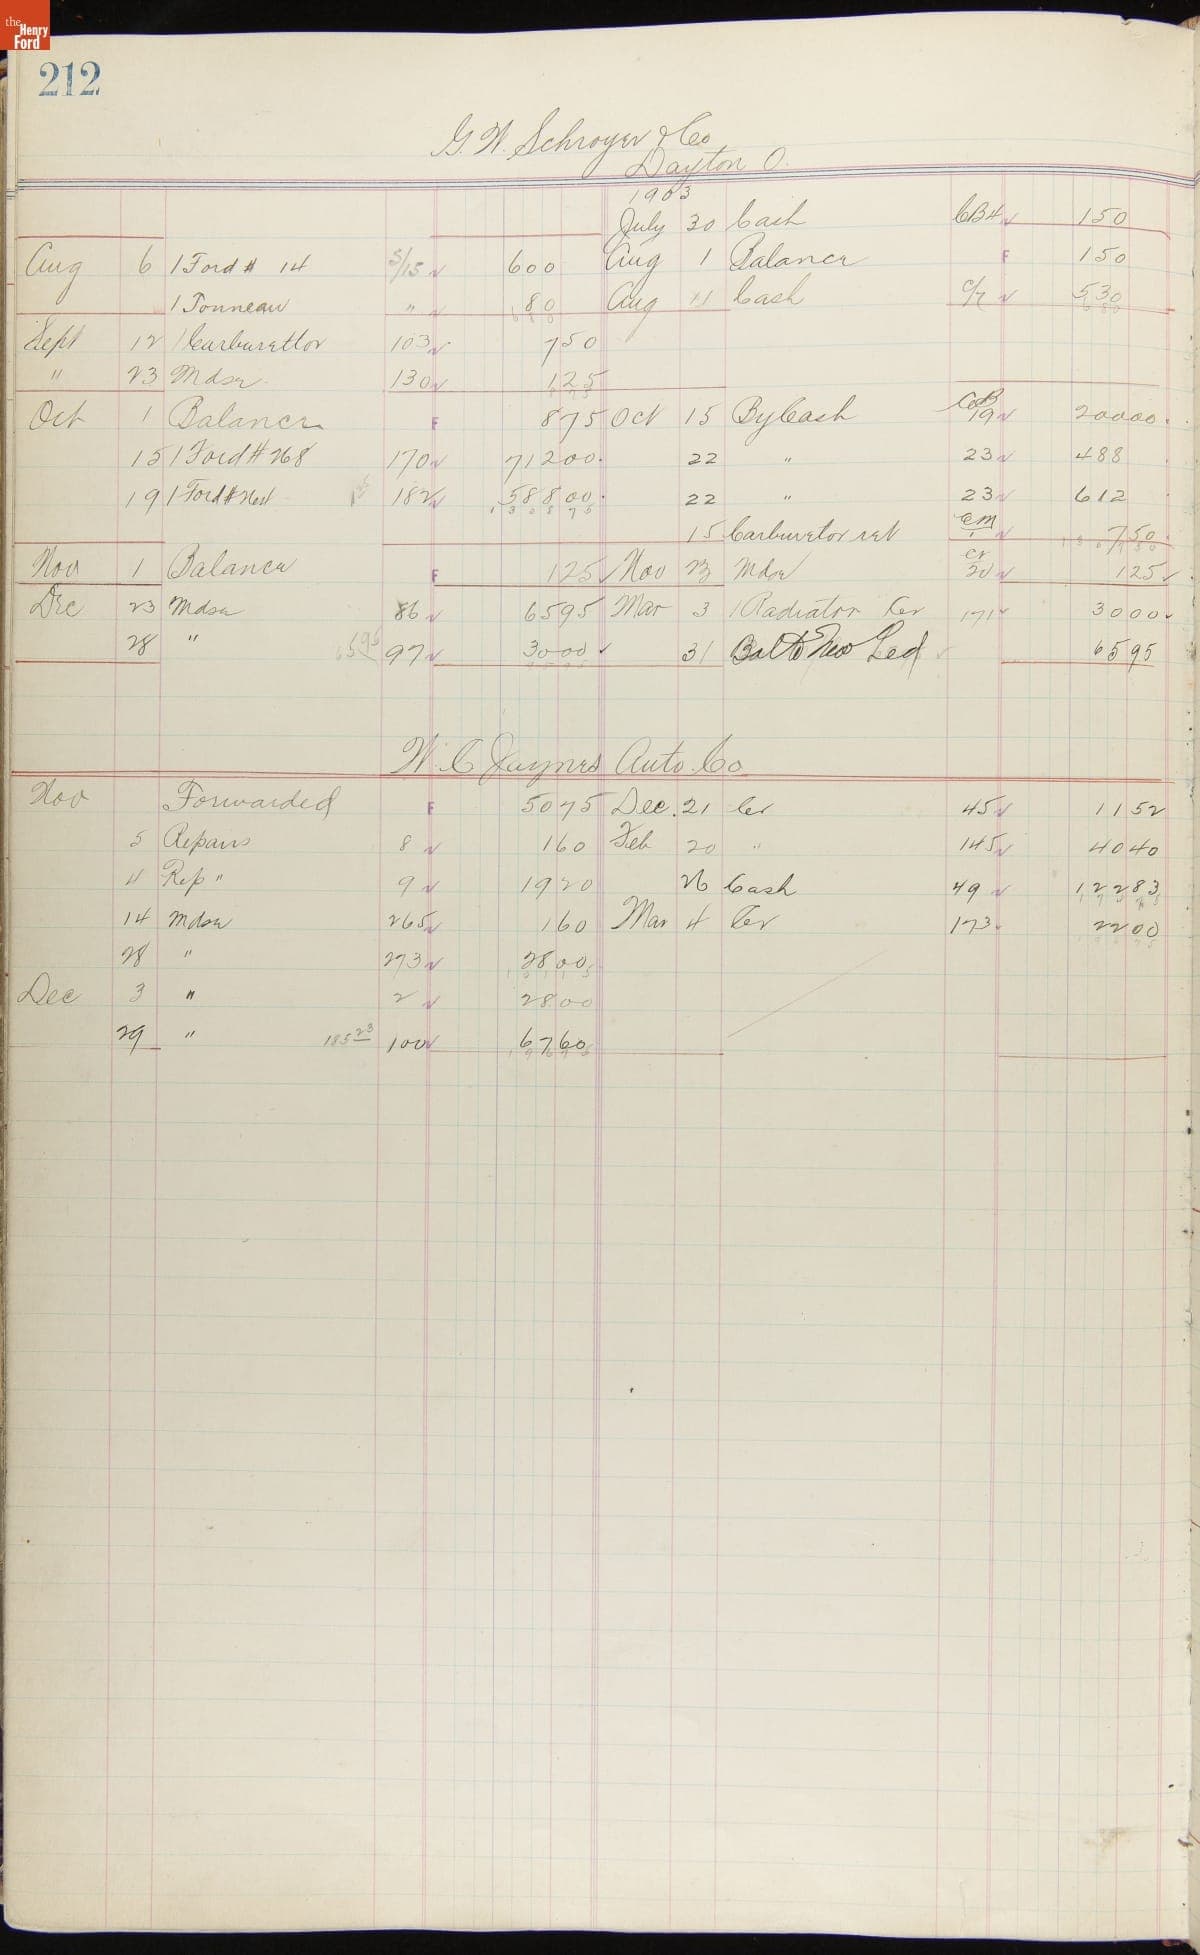 the Henry Ford
212
G. W. Schroyer & Co
Dayton O.
1903
July 30 Cash CB4 150
Aug 6 1 Ford # 14 S/15 600 Aug 1 Balance F 150
1 Tonneau " 80 Aug 11 Cash C/7 530
680 680
Sept 12 1 Carburettor 103 750
" 23 Mdse 130 125
875
Oct 1 Balance F 875 Oct 15 By Cash 19 20000
15 1 Ford # 268 170 71200 22 " 23 488
19 1 Ford # 182 58800 22 " 23 612
130875
15 Carburetor ret CM 1 750
130750
Nov 1 Balance F 125 Nov 23 Mdse Cr 20 125
Dec 23 Mdse 86 6595 Mar 3 1 Radiator Cr 171 3000
28 " 6595 97 3000 31 Bal to New Led 6595
9595
W. C. Jaynes Auto Co
Nov Forwarded F 5075 Dec. 21 Cr 45 1152
5 Repairs 8 160 Feb 20 " 145 4040
4 Rep " 9 1920 26 Cash 49 12283
17475
14 Mdse 265 160 Mar 4 Cr 173 2200
19675
28 " 273 2800
10115
Dec 3 " 2 2800
29 " 18523 100 6760
19675